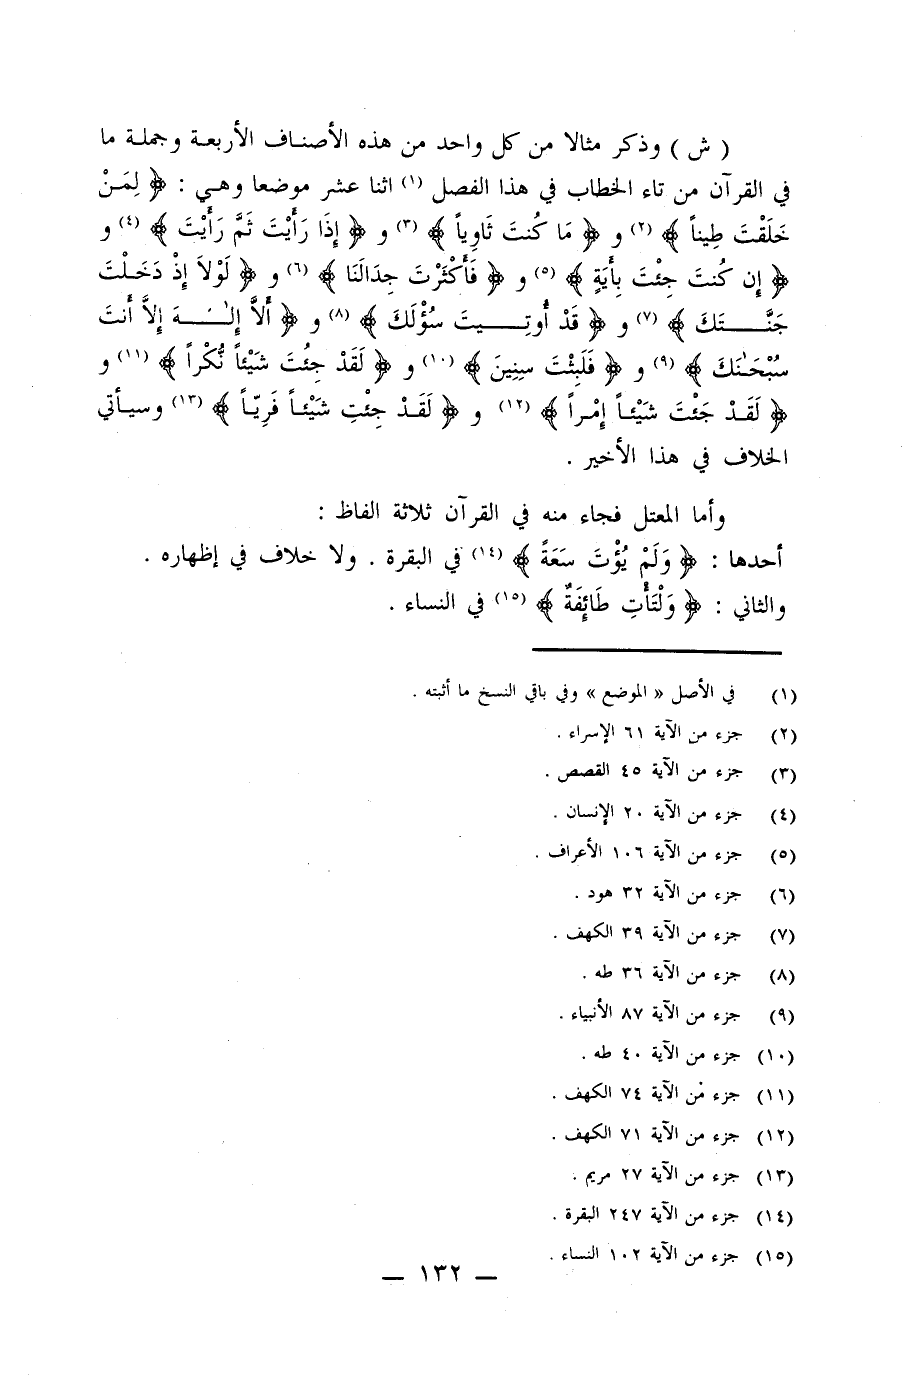 ( ش ) وذكر مثالا من كل واحد من هذه الأصناف الأربعة وجملة ما
في القرآن من تاء الخطاب في هذا الفصل (١) اثنا عشر موضعا وهي : ﴿ لِمَنْ
خَلَقْتَ طِيناً ﴾ (٢) و ﴿ مَا كُنتَ ثَاوِياً ﴾ (٣) و ﴿ إِذَا رَأَيْتَ ثَمَّ رَأَيْتَ ﴾ (٤) و
﴿ إِن كُنتَ جِئْتَ بِأَيَةٍ ﴾ (٥) و ﴿ فَأَكْثَرْتَ جِدَالَنَا ﴾ (٦) و ﴿ لَوْلاَ إِذْ دَخَلْتَ
جَنَّتَكَ ﴾ (٧) و ﴿ قَدْ أُوتِيتَ سُؤْلَكَ ﴾ (٨) و ﴿ أَلاَّ إِلَـٰهَ إِلاَّ أَنتَ
سُبْحَـٰنَكَ ﴾ (٩) و ﴿ فَلَبِثْتَ سِنِينَ ﴾ (١٠) و ﴿ لَقَدْ جِئْتَ شَيْئاً نُّكْراً ﴾ (١١) و
﴿ لَقَدْ جَئْتَ شَيْئاً إِمْراً ﴾ (١٢) و ﴿ لَقَدْ جِئْتِ شَيْئاً فَرِيّاً ﴾ (١٣) وسيأتي
الخلاف في هذا الأخير .
وأما المعتل فجاء منه في القرآن ثلاثة الفاظ :
أحدها : ﴿ وَلَمْ يُؤْتَ سَعَةً ﴾ (١٤) في البقرة . ولا خلاف في إظهاره .
والثاني : ﴿ وَلْتَأْتِ طَائِفَةٌ ﴾ (١٥) في النساء .
(١) في الأصل « الموضع » وفي باقي النسخ ما أثبته .
(٢) جزء من الآية ٦١ الإسراء .
(٣) جزء من الآية ٤٥ القصص .
(٤) جزء من الآية ٢٠ الإنسان .
(٥) جزء من الآية ١٠٦ الأعراف .
(٦) جزء من الآية ٣٢ هود .
(٧) جزء من الآية ٣٩ الكهف .
(٨) جزء من الآية ٣٦ طه .
(٩) جزء من الآية ٨٧ الأنبياء .
(١٠) جزء من الآية ٤٠ طه .
(١١) جزء من الآية ٧٤ الكهف .
(١٢) جزء من الآية ٧١ الكهف .
(١٣) جزء من الآية ٢٧ مريم .
(١٤) جزء من الآية ٢٤٧ البقرة .
(١٥) جزء من الآية ١٠٢ النساء .
— ١٣٢ —